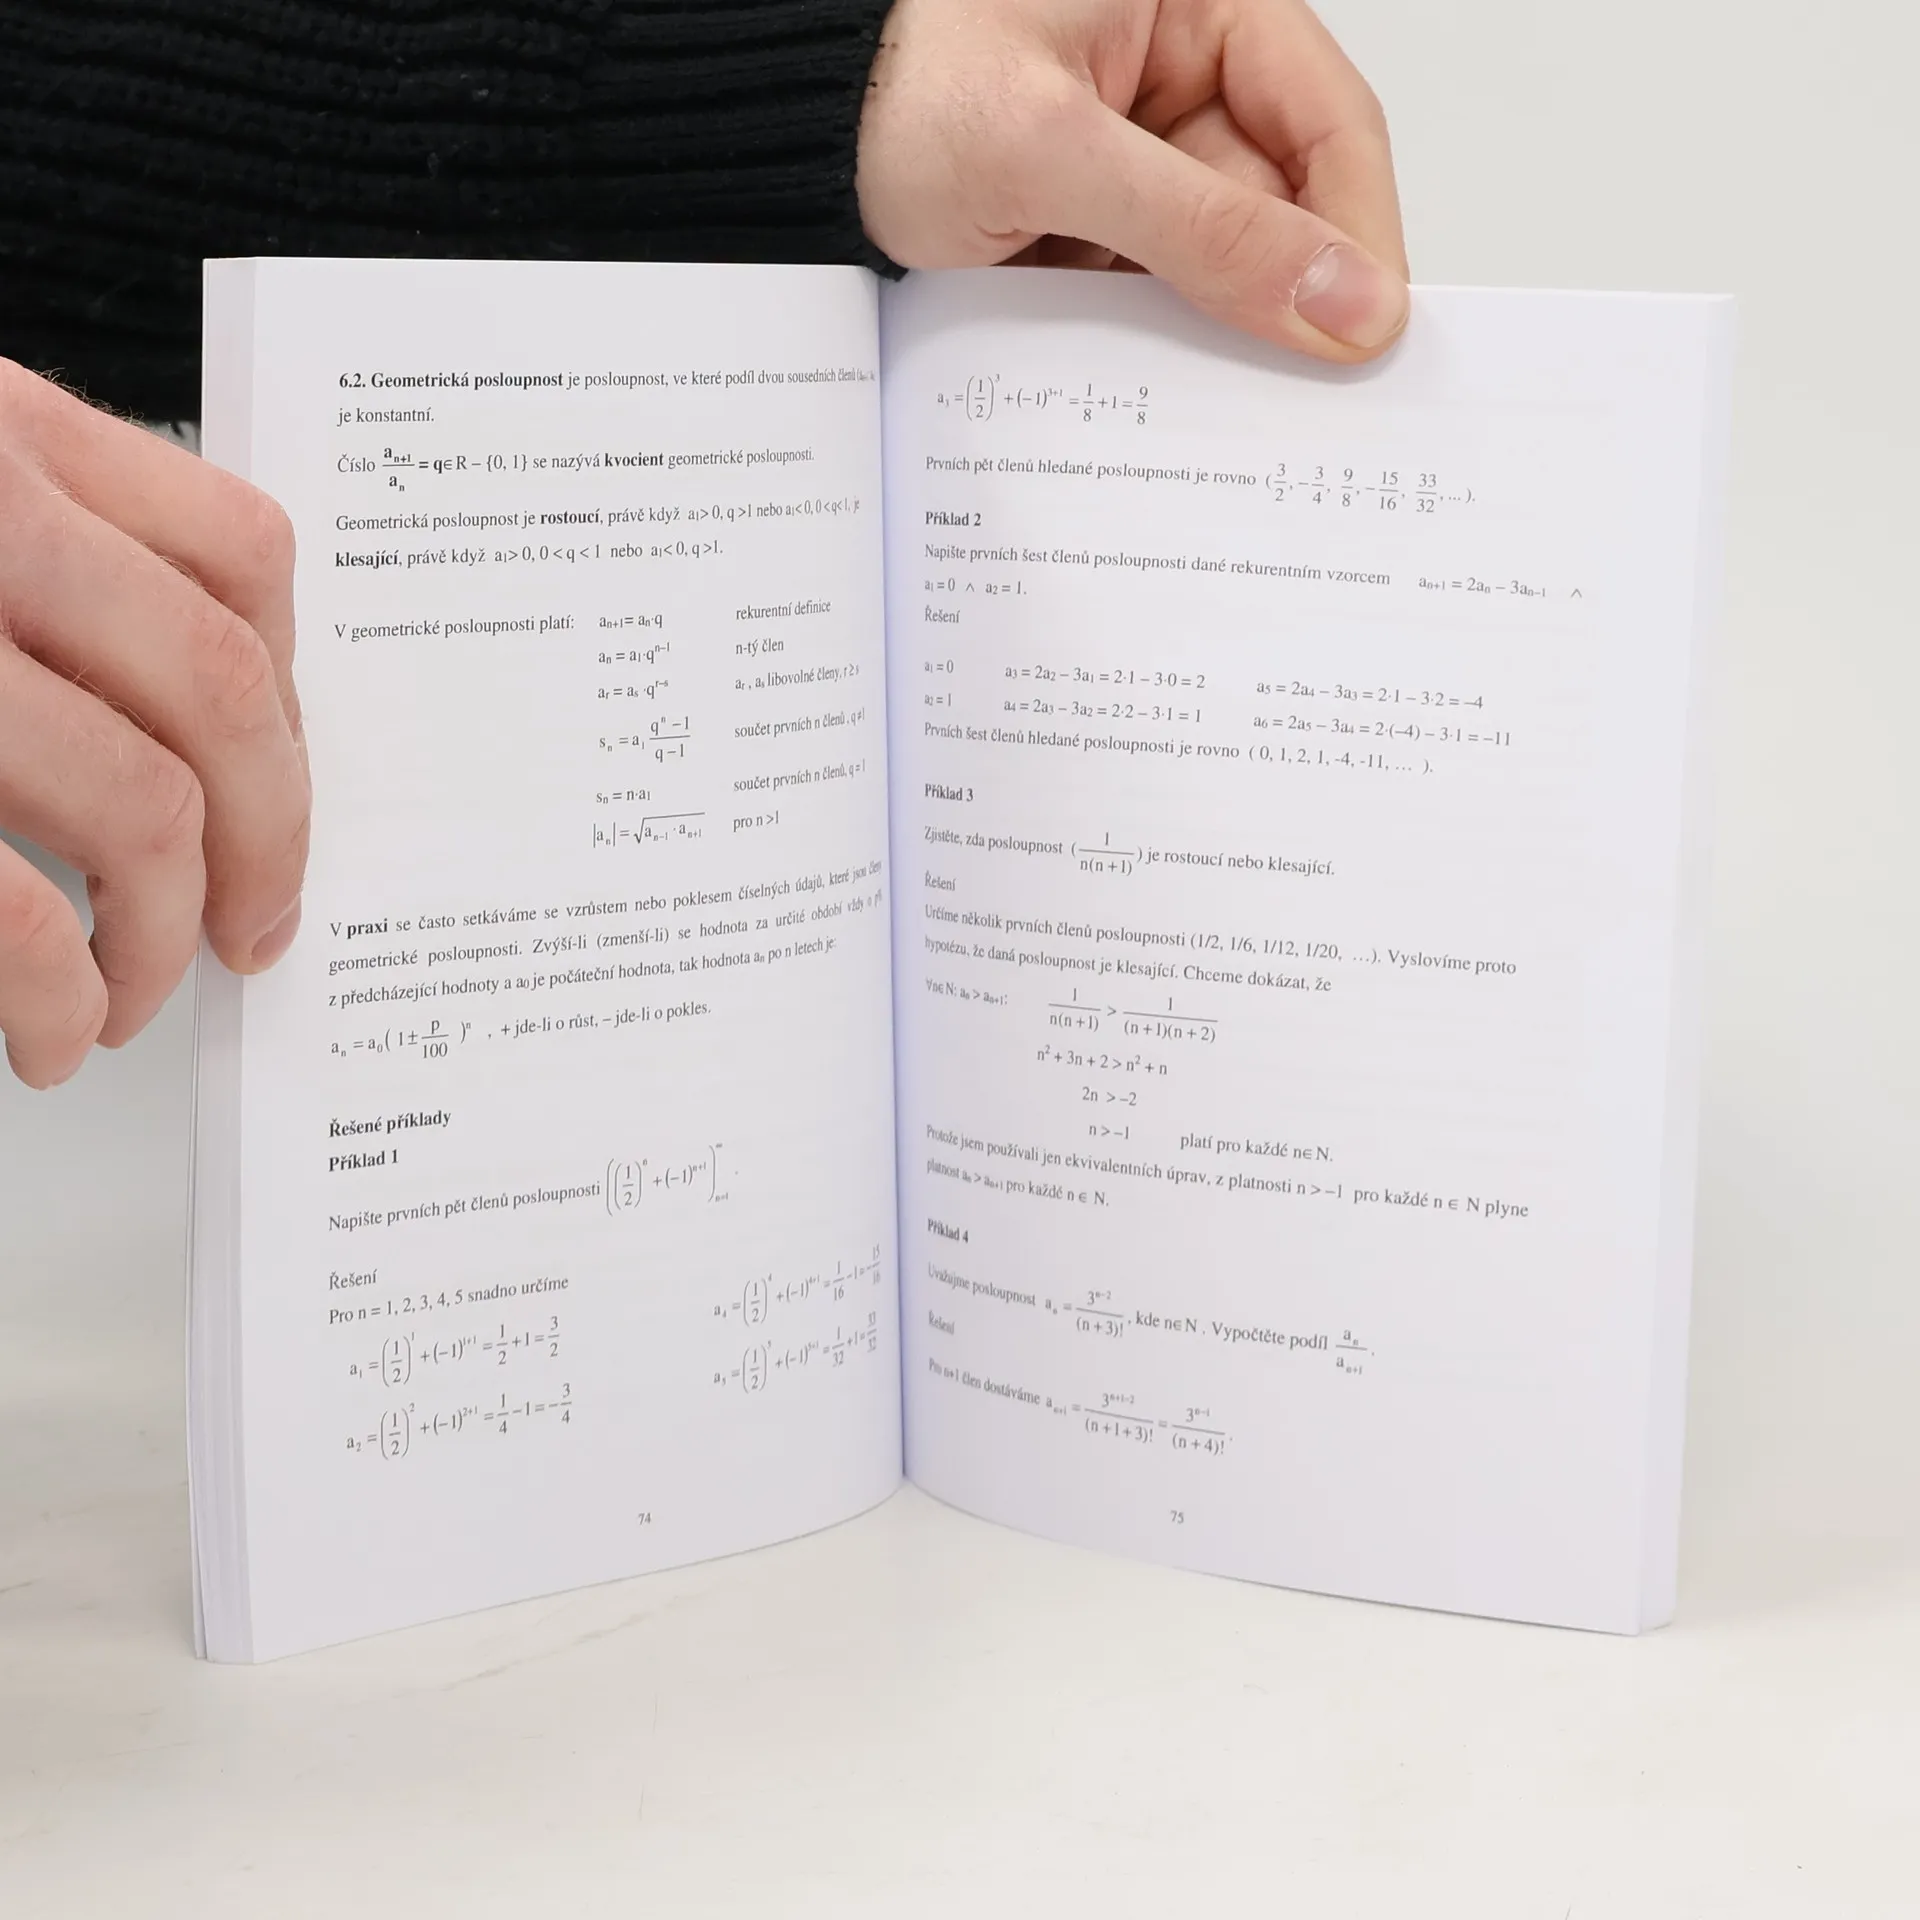 6.2. Geometrická posloupnost je posloupnost, ve které podíl dvou sousedních členů
je konstantní.
Číslo a_{n+1}/a_n = q∈R – {0, 1} se nazývá kvocient geometrické posloupnosti.
Geometrická posloupnost je rostoucí, právě když a₁> 0, q >1 nebo a₁< 0, 0 <q< 1, je
klesající, právě když a₁> 0, 0 < q < 1 nebo a₁< 0, q >1.
V geometrické posloupnosti platí: a_{n+1}= a_n·q rekurentní definice
a_n = a₁·q^{n–1} n-tý člen
a_r = a_s ·q^{r–s} a_r , a_s libovolné členy, r ≥ s
s_n = a₁ (q^n –1)/(q–1) součet prvních n členů, q ≠1
s_n = n·a₁ součet prvních n členů, q = 1
|a_n| = √(a_{n–1} · a_{n+1}) pro n >1
V praxi se často setkáváme se vzrůstem nebo poklesem číselných údajů, které jsou členy
geometrické posloupnosti. Zvýší-li (zmenší-li) se hodnota za určité období vždy o p%
z předcházející hodnoty a a₀ je počáteční hodnota, tak hodnota a_n po n letech je:
a_n = a₀( 1± p/100 )^n , + jde-li o růst, – jde-li o pokles.
Řešené příklady
Příklad 1
Napište prvních pět členů posloupnosti ((1/2)^n + (–1)^{n+1})_{n=1}^∞ .
Řešení
Pro n = 1, 2, 3, 4, 5 snadno určíme
a₁ = (1/2)^1 + (–1)^{1+1} = 1/2 + 1 = 3/2 a₄ = (1/2)^4 + (–1)^{4+1} = 1/16 – 1 = –15/16
a₂ = (1/2)^2 + (–1)^{2+1} = 1/4 – 1 = –3/4 a₅ = (1/2)^5 + (–1)^{5+1} = 1/32 + 1 = 33/32
74
a₃ = (1/2)^3 + (–1)^{3+1} = 1/8 + 1 = 9/8
Prvních pět členů hledané posloupnosti je rovno (3/2, –3/4, 9/8, –15/16, 33/32, ... ).
Příklad 2
Napište prvních šest členů posloupnosti dané rekurentním vzorcem a_{n+1} = 2a_n – 3a_{n–1} ∧
a₁ = 0 ∧ a₂ = 1.
Řešení
a₁ = 0 a₃ = 2a₂ – 3a₁ = 2·1 – 3·0 = 2 a₅ = 2a₄ – 3a₃ = 2·1 – 3·2 = –4
a₂ = 1 a₄ = 2a₃ – 3a₂ = 2·2 – 3·1 = 1 a₆ = 2a₅ – 3a₄ = 2·(–4) – 3·1 = –11
Prvních šest členů hledané posloupnosti je rovno ( 0, 1, 2, 1, -4, -11, ... ).
Příklad 3
Zjistěte, zda posloupnost ( 1/(n(n+1)) ) je rostoucí nebo klesající.
Řešení
Určíme několik prvních členů posloupnosti (1/2, 1/6, 1/12, 1/20, ...). Vyslovíme proto
hypotézu, že daná posloupnost je klesající. Chceme dokázat, že
∀n∈ N: a_n > a_{n+1}: 1/(n(n+1)) > 1/((n+1)(n+2))
n² + 3n + 2 > n² + n
2n > –2
n > –1 platí pro každé n∈ N.
Protože jsem používali jen ekvivalentních úprav, z platnosti n > –1 pro každé n ∈ N plyne
platnost a_n > a_{n+1} pro každé n ∈ N.
Příklad 4
Uvažujme posloupnost a_n = 3^{n–2}/(n+3)!, kde n∈N . Vypočtěte podíl a_n/a_{n+1}.
Řešení
Pro n+1 člen dostáváme a_{n+1} = 3^{n+1–2}/(n+1+3)! = 3^{n–1}/(n+4)!.
75